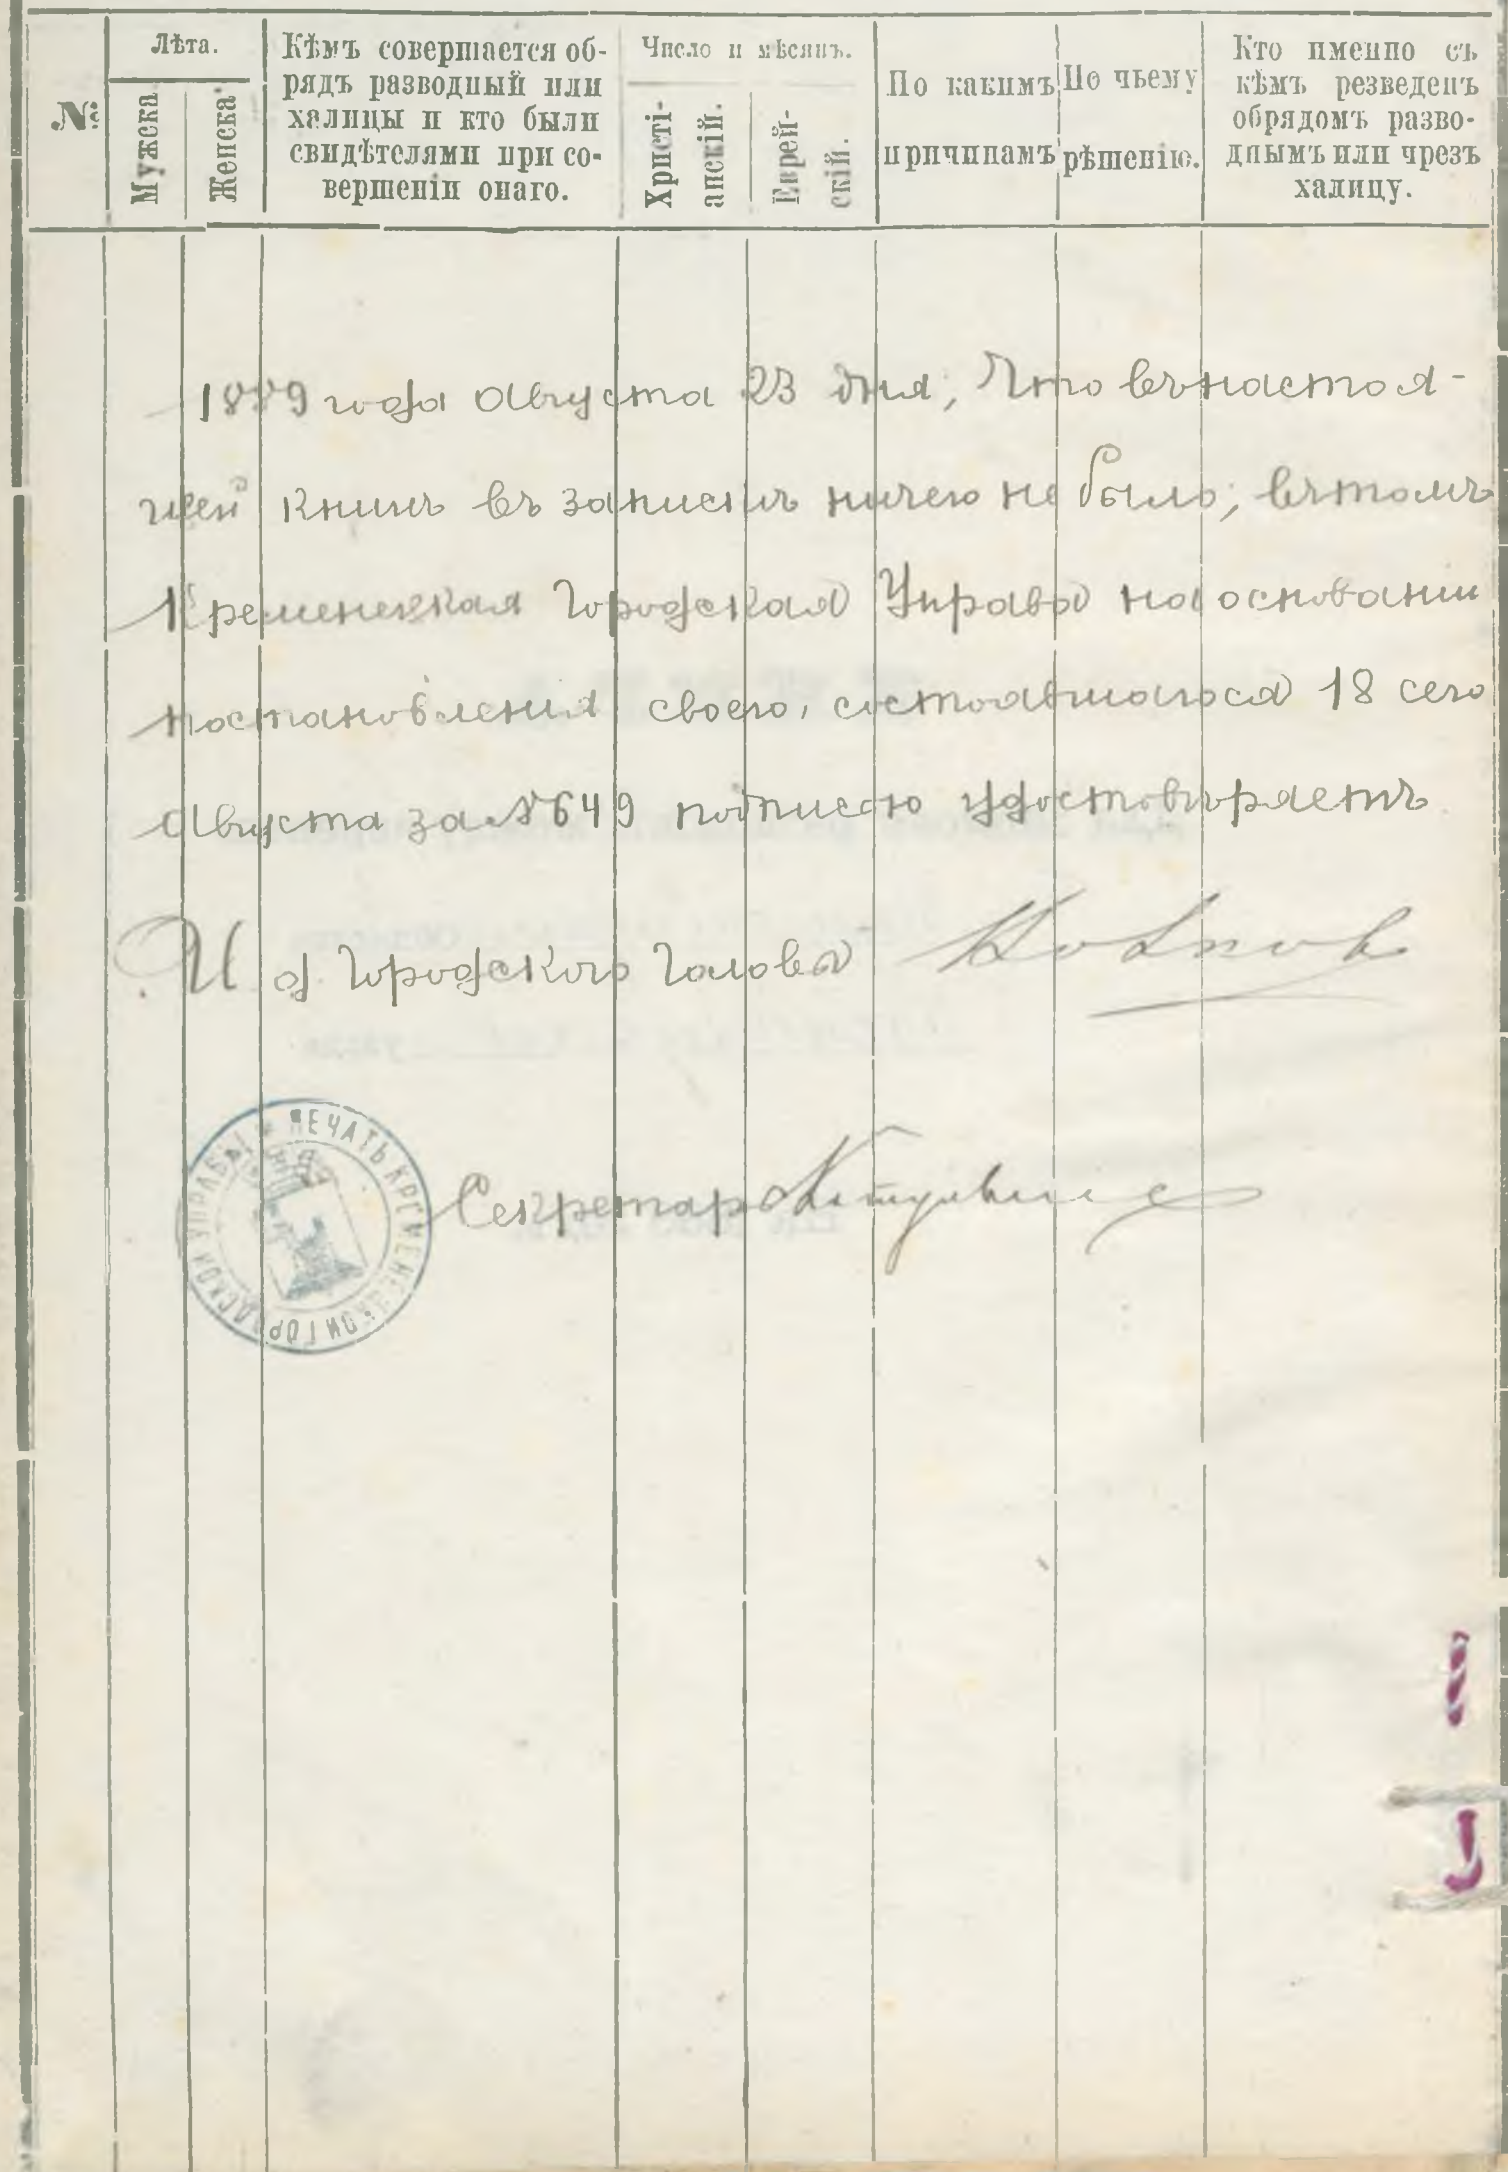 №
Лѣта.
Мужска
Женска
Кѣмъ совершается об-
рядъ разводный или
халицы и кто были
свидѣтелями при со-
вершеніи онаго.
Число и мѣсяцъ.
Христі-
анскій.
Еврей-
скій.
По какимъ
причинамъ
По чьему
рѣшенію.
Кто именно съ
кѣмъ резведенъ
обрядомъ разво-
днымъ или чрезъ
халицу.
1889 года Августа 23 дня, Что въ настоя-
щей книгѣ въ записи ничего не было, въ томъ
Кременецкая Городская Управа на основаніи
постановленія своего, состоявшагося 18 сего
Августа за № 649 подписью удостовѣряетъ
И д Городского Головы
Секретарь
ПЕЧАТЬ КРЕМЕНЕЦКОЙ ГОРОДСКОЙ УПРАВЫ